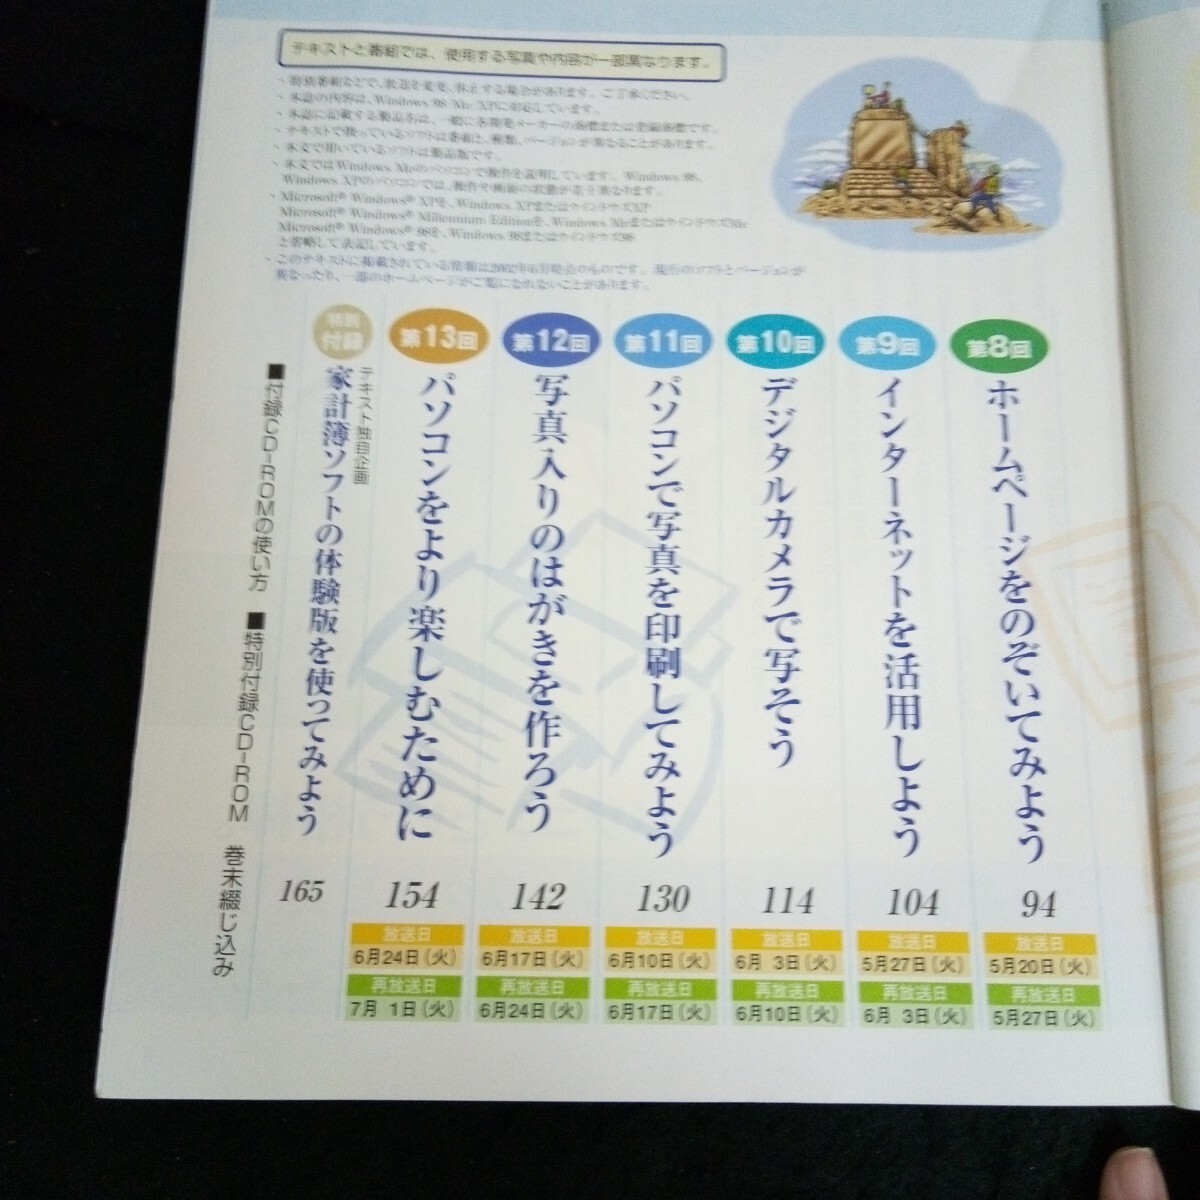 テキストと番組では、使用する写真や内容が一部異なります。
・特別番組などで、放送を変更、休止する場合があります。ご了承ください。
・本誌の内容は、Windows 98 Me XPに対応しています。
・本誌に記載する製品名は、一般に各開発メーカーの商標または登録商標です。
・テキストで扱っているソフトは番組と、種類、バージョンが異なることがあります。
・本文で用いているソフトは製品版です。
・本文ではWindows Meのパソコンで操作を説明しています。Windows 98、
Windows XPのパソコンでは、操作や画面の状態が若干異なります。
・Microsoft® Windows® XPを、Windows XPまたはウインドウズXP
Microsoft® Windows® Millennium Editionを、Windows MeまたはウインドウズMe
Microsoft® Windows® 98を、Windows 98またはウインドウズ98
と省略して表記しています。
・このテキストに掲載されている情報は2002年6月時点のものです。現行のソフトとバージョンが
異なったり、一部のホームページがご覧になれないことがあります。
第8回
ホームページをのぞいてみよう
94
放送日
5月20日(火)
再放送日
5月27日(火)
第9回
インターネットを活用しよう
104
放送日
5月27日(火)
再放送日
6月 3日(火)
第10回
デジタルカメラで写そう
114
放送日
6月 3日(火)
再放送日
6月10日(火)
第11回
パソコンで写真を印刷してみよう
130
放送日
6月10日(火)
再放送日
6月17日(火)
第12回
写真入りのはがきを作ろう
142
放送日
6月17日(火)
再放送日
6月24日(火)
第13回
パソコンをより楽しむために
154
放送日
6月24日(火)
再放送日
7月 1日(火)
特別
付録
テキスト独自企画
家計簿ソフトの体験版を使ってみよう
165
■付録CD-ROMの使い方
■特別付録CD-ROM 巻末綴じ込み